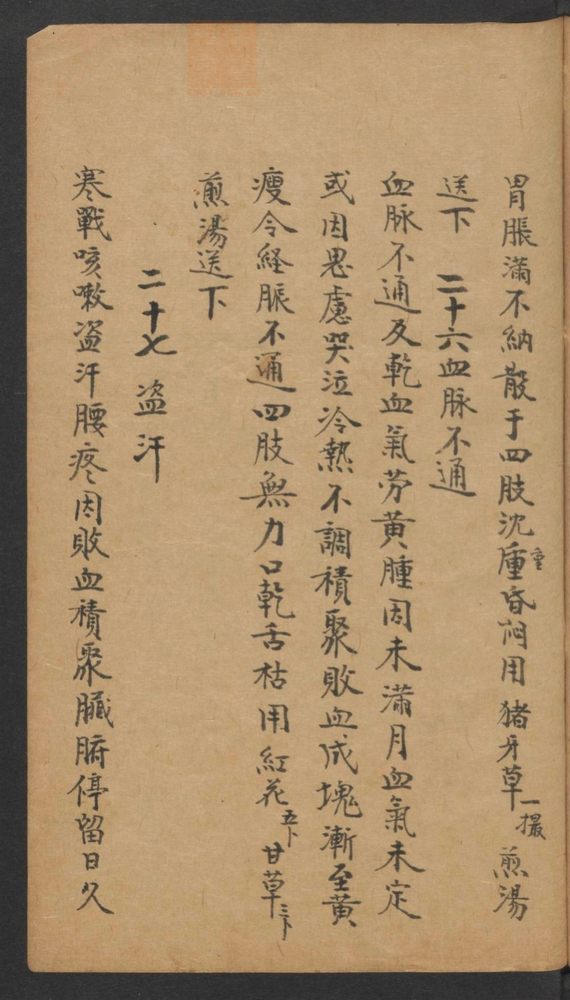 胃脹滿不納散于四肢沈重昏悶用猪牙草一撮煎湯
送下　二十六血脉不通
血脉不通及乾血氣労黄腫因未滿月血氣未定
或因思慮哭泣冷熱不調積聚敗血成塊漸至黄
瘦令経脤不通四肢無力口乾舌枯用紅花五卜甘草三卜
煎湯送下
二十七盗汗
寒戰咳嗽盗汗腰疼因敗血積聚臓腑停留日久